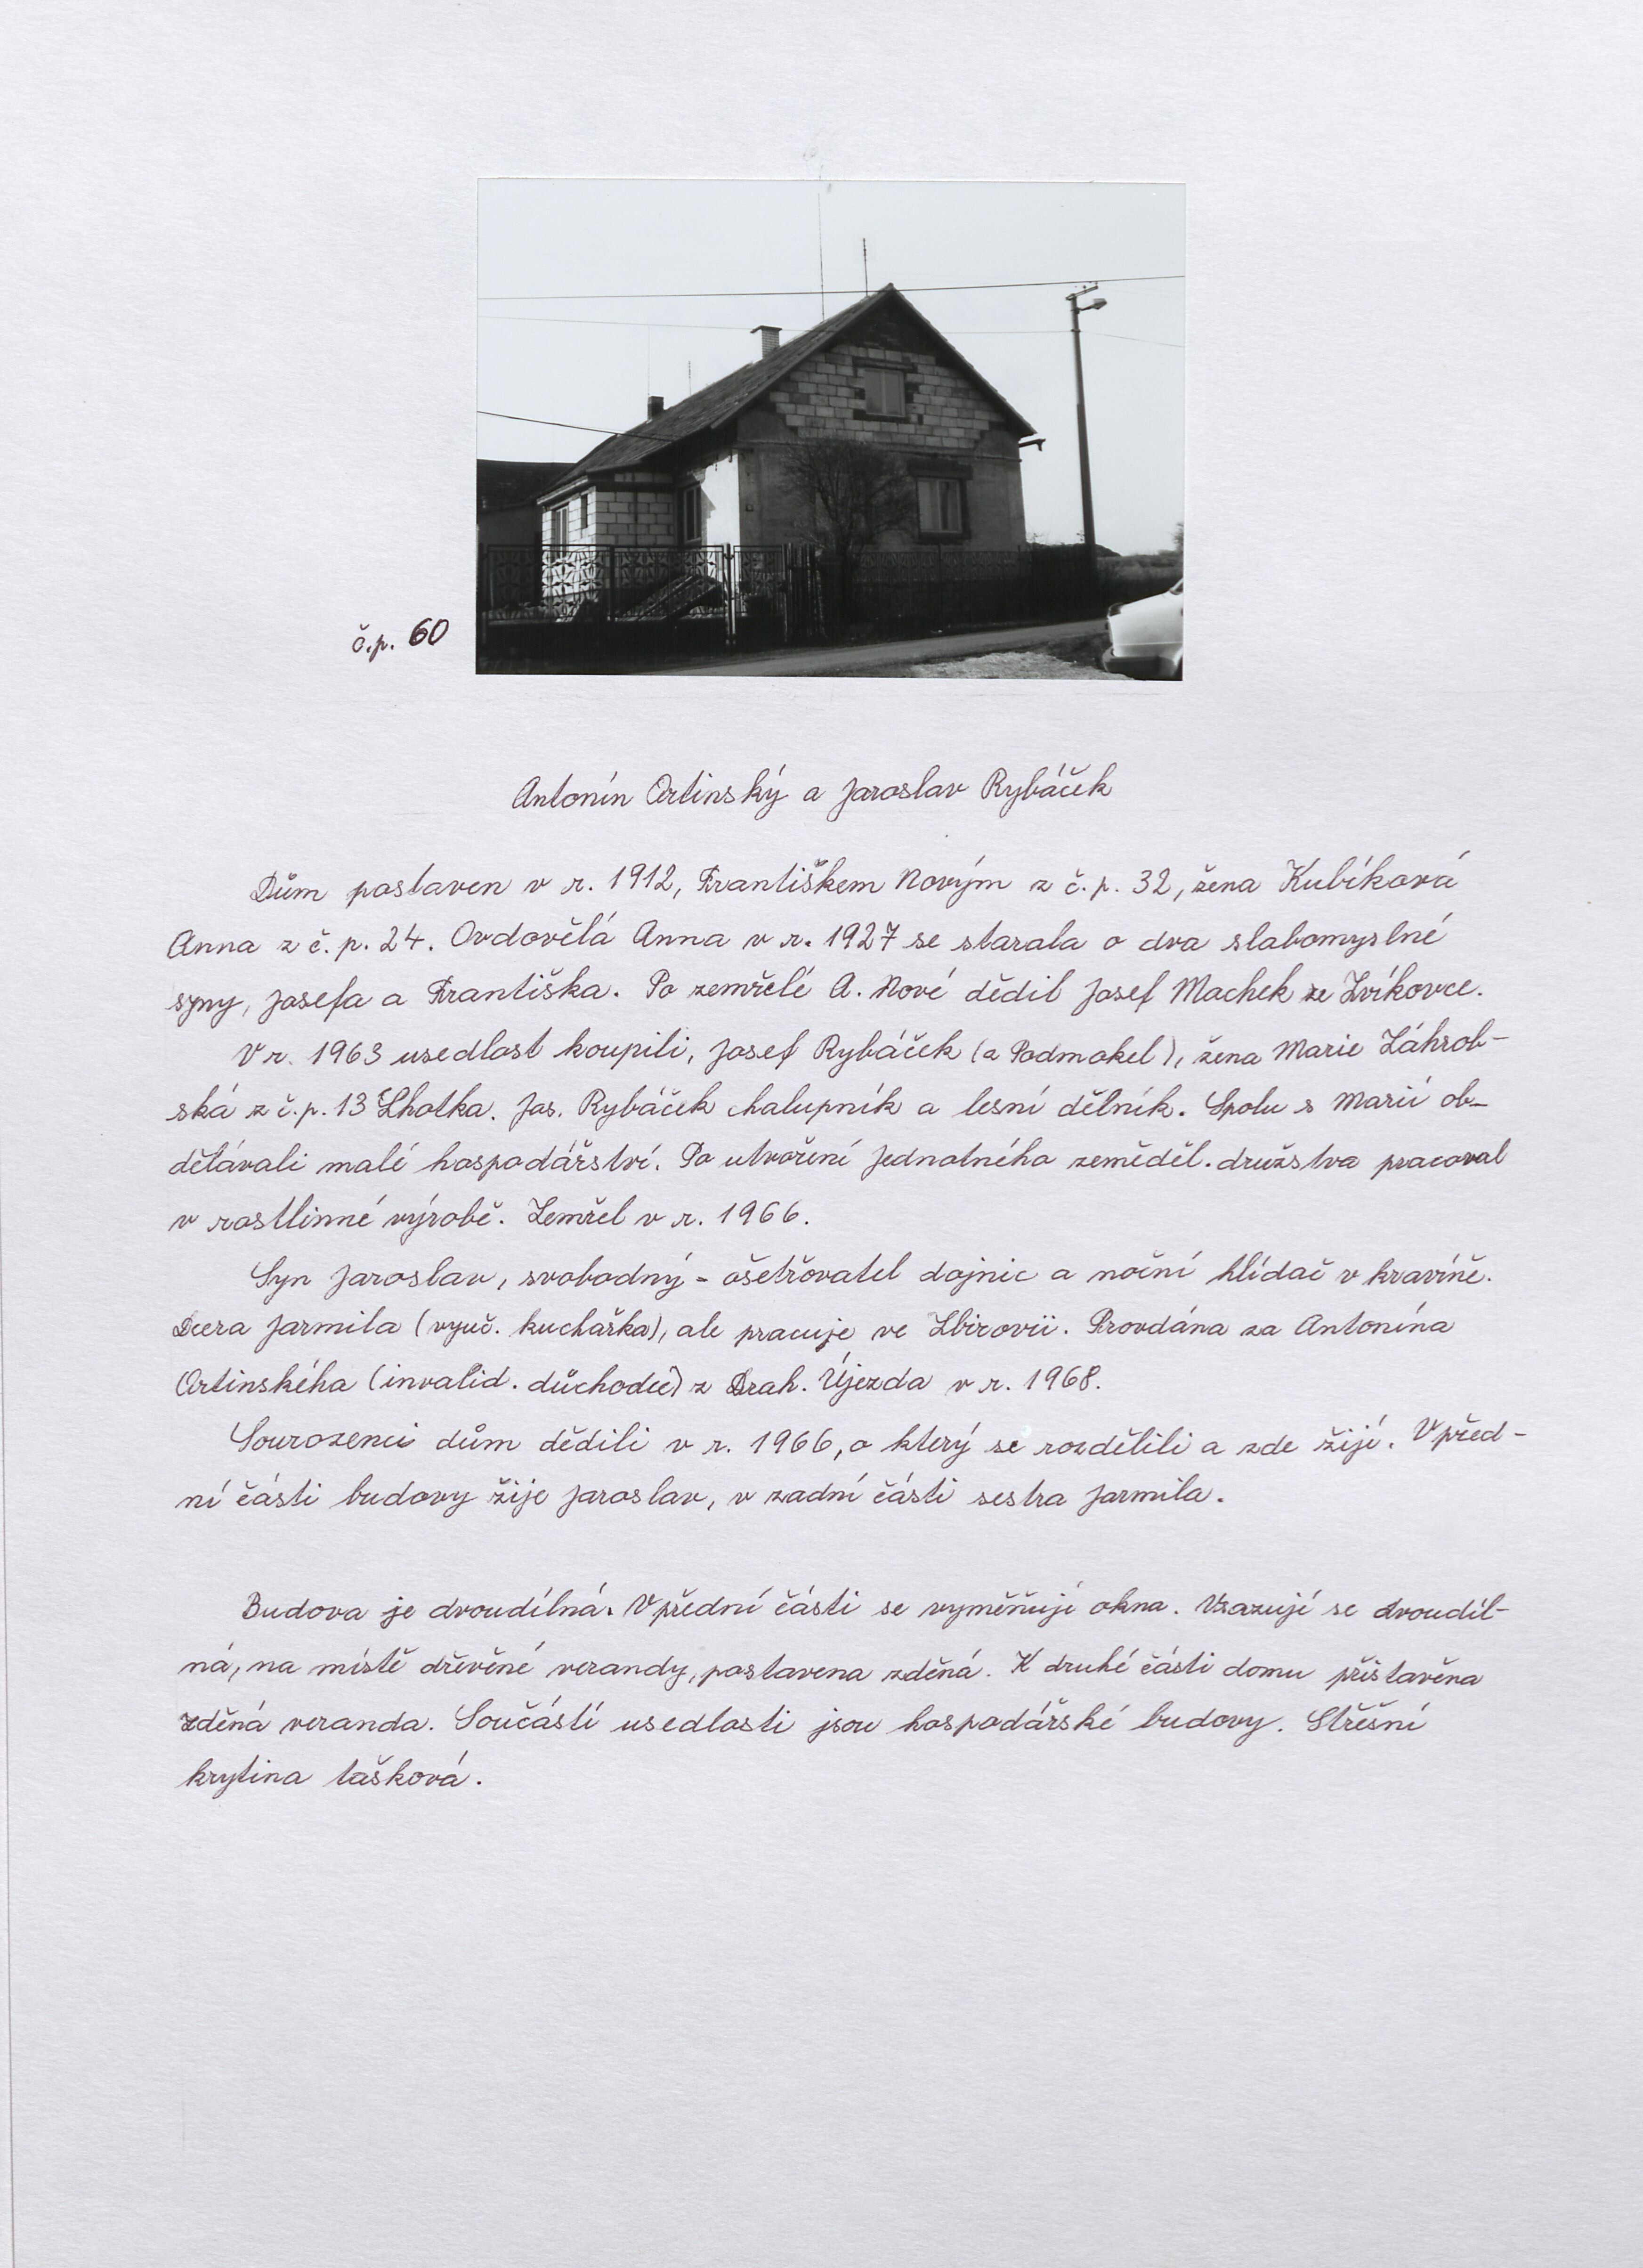 č.p. 60
Antonín Ortinský a Jaroslav Rybáček
Dům postaven v r. 1912, Františkem Novým z č.p. 32, žena Kubíková
Anna z č.p. 24. Ovdovělá Anna v r. 1927 se starala o dva slabomyslné
syny, Josefa a Františka. Po zemřelé A. Nové dědil Josef Machek ze Zvíkovce.
V r. 1963 usedlost koupili, Josef Rybáček (z Podmokel), žena Marie Záhrob-
ská z č.p. 13 Lhotka. Jos. Rybáček chalupník a lesní dělník. Spolu s Marií ob-
dělávali malé hospodářství. Po utvoření Jednotného zeměděl. družstva pracoval
v rostlinné výrobě. Zemřel v r. 1966.
Syn Jaroslav, svobodný - ošetřovatel dojnic a noční hlídač v kravíně.
Dcera Jarmila (vyuč. kuchařka), ale pracuje ve Zbirovii. Provdána za Antonína
Ortinského (invalid. důchodce) z Drah. Újezda v r. 1968.
Sourozenci dům dědili v r. 1966, o který se rozdělili a zde žijí. V před-
ní části budovy žije Jaroslav, v zadní části sestra Jarmila.
Budova je dvoudílná. V přední části se vyměňují okna. Vsazují se dvoudíl-
ná, na místě dřevěné verandy, postavena zděná. K druhé části domu přistavěna
zděná veranda. Součástí usedlosti jsou hospodářské budovy. Střešní
krytina tašková.